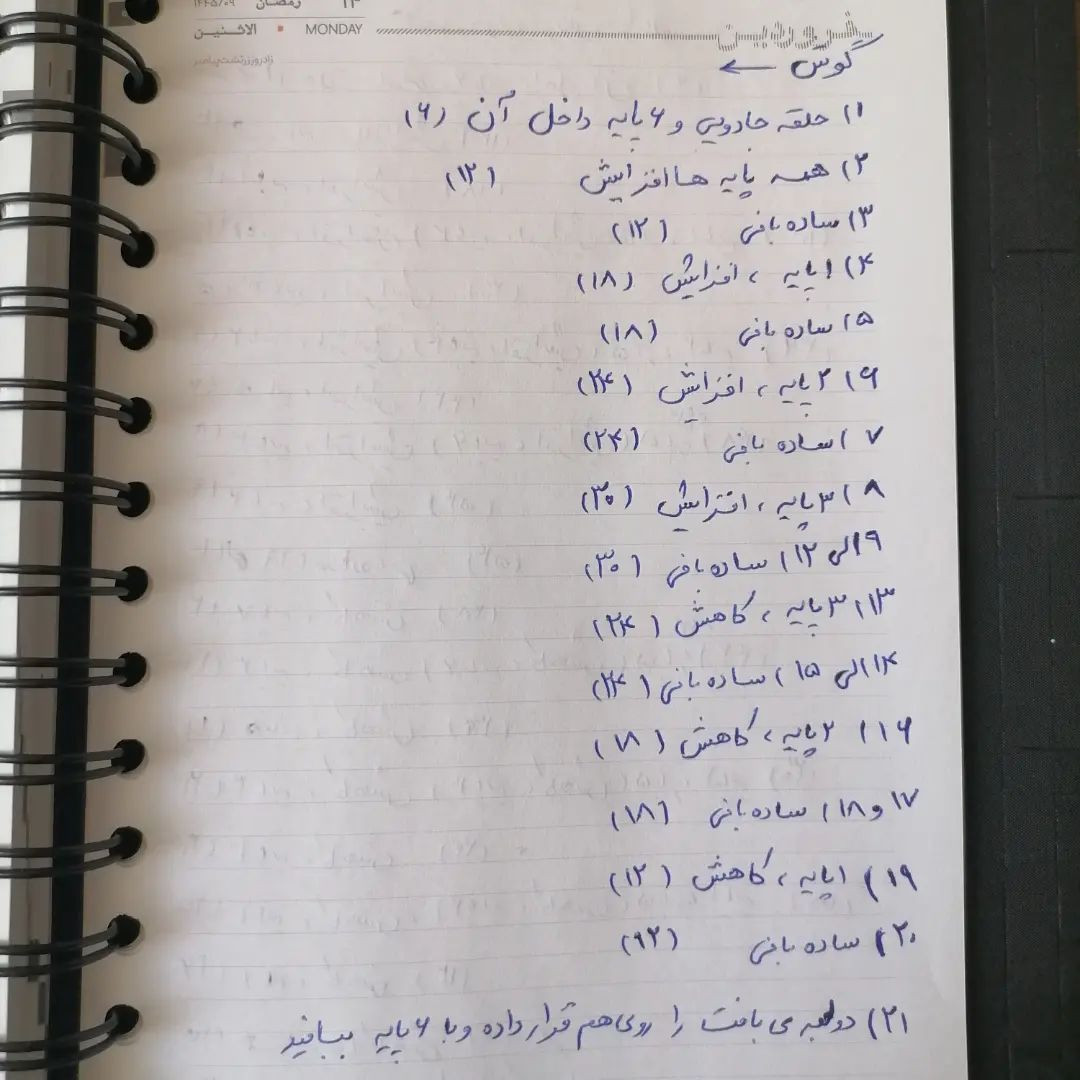 ۱۴۴۵/۰۹ رمضان ۱۳
الاثنین ▪ MONDAY فروردین
زادروز زرتشت پیامبر
گوش ←
۱) حلقه جادویی و ۶ پایه داخل آن (۶)
۲) همه پایه ها افزایش (۱۲)
۳) ساده بافی (۱۲)
۴) ۱ پایه ، افزایش (۱۸)
۵) ساده بافی (۱۸)
۶) ۲ پایه ، افزایش (۲۴)
۷) ساده بافی (۲۴)
۸) ۳ پایه ، افزایش (۳۰)
۹ الی ۱۲) ساده بافی (۳۰)
۱۳) ۳ پایه ، کاهش (۲۴)
۱۴ الی ۱۵) ساده بافی (۲۴)
۱۶) ۲ پایه ، کاهش (۱۸)
۱۷ و ۱۸) ساده بافی (۱۸)
۱۹) ۱ پایه ، کاهش (۱۲)
۲۰) ساده بافی (۹۲)
۲۱) دو لبه ی بافت را روی هم قرار داده و با ۶ پایه ببافید